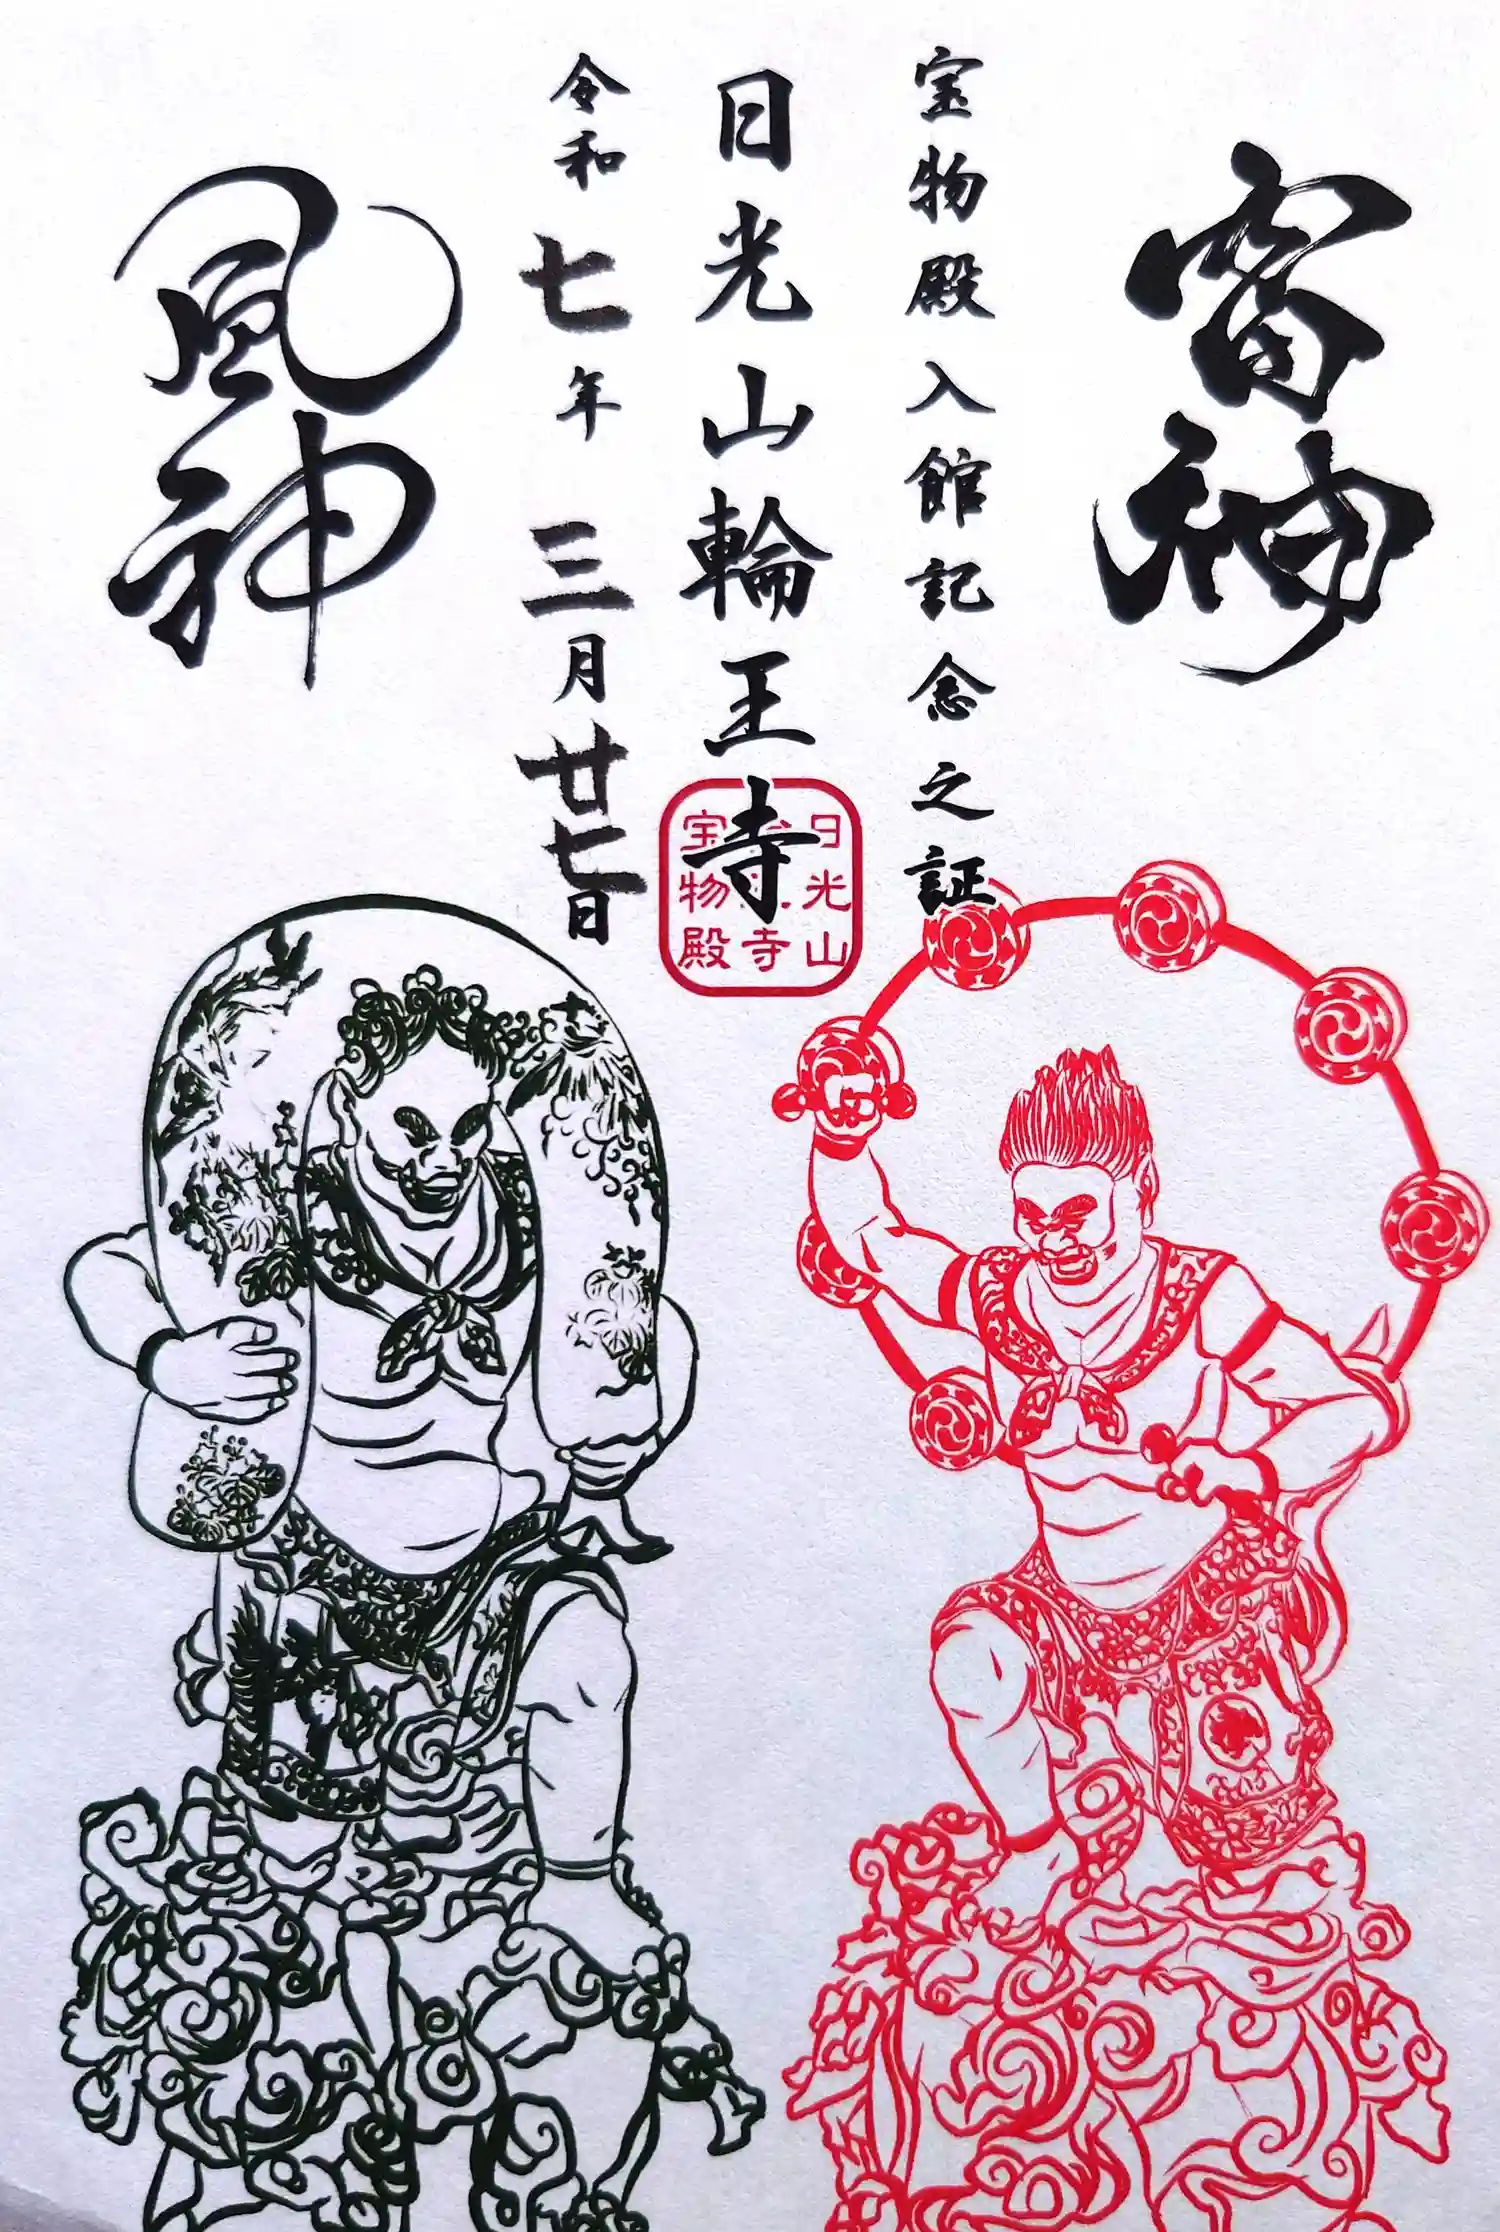 雷神
宝物殿入館記念之証
日光山輪王寺
令和七年三月廿七日
風神
日光山
寺
宝物殿